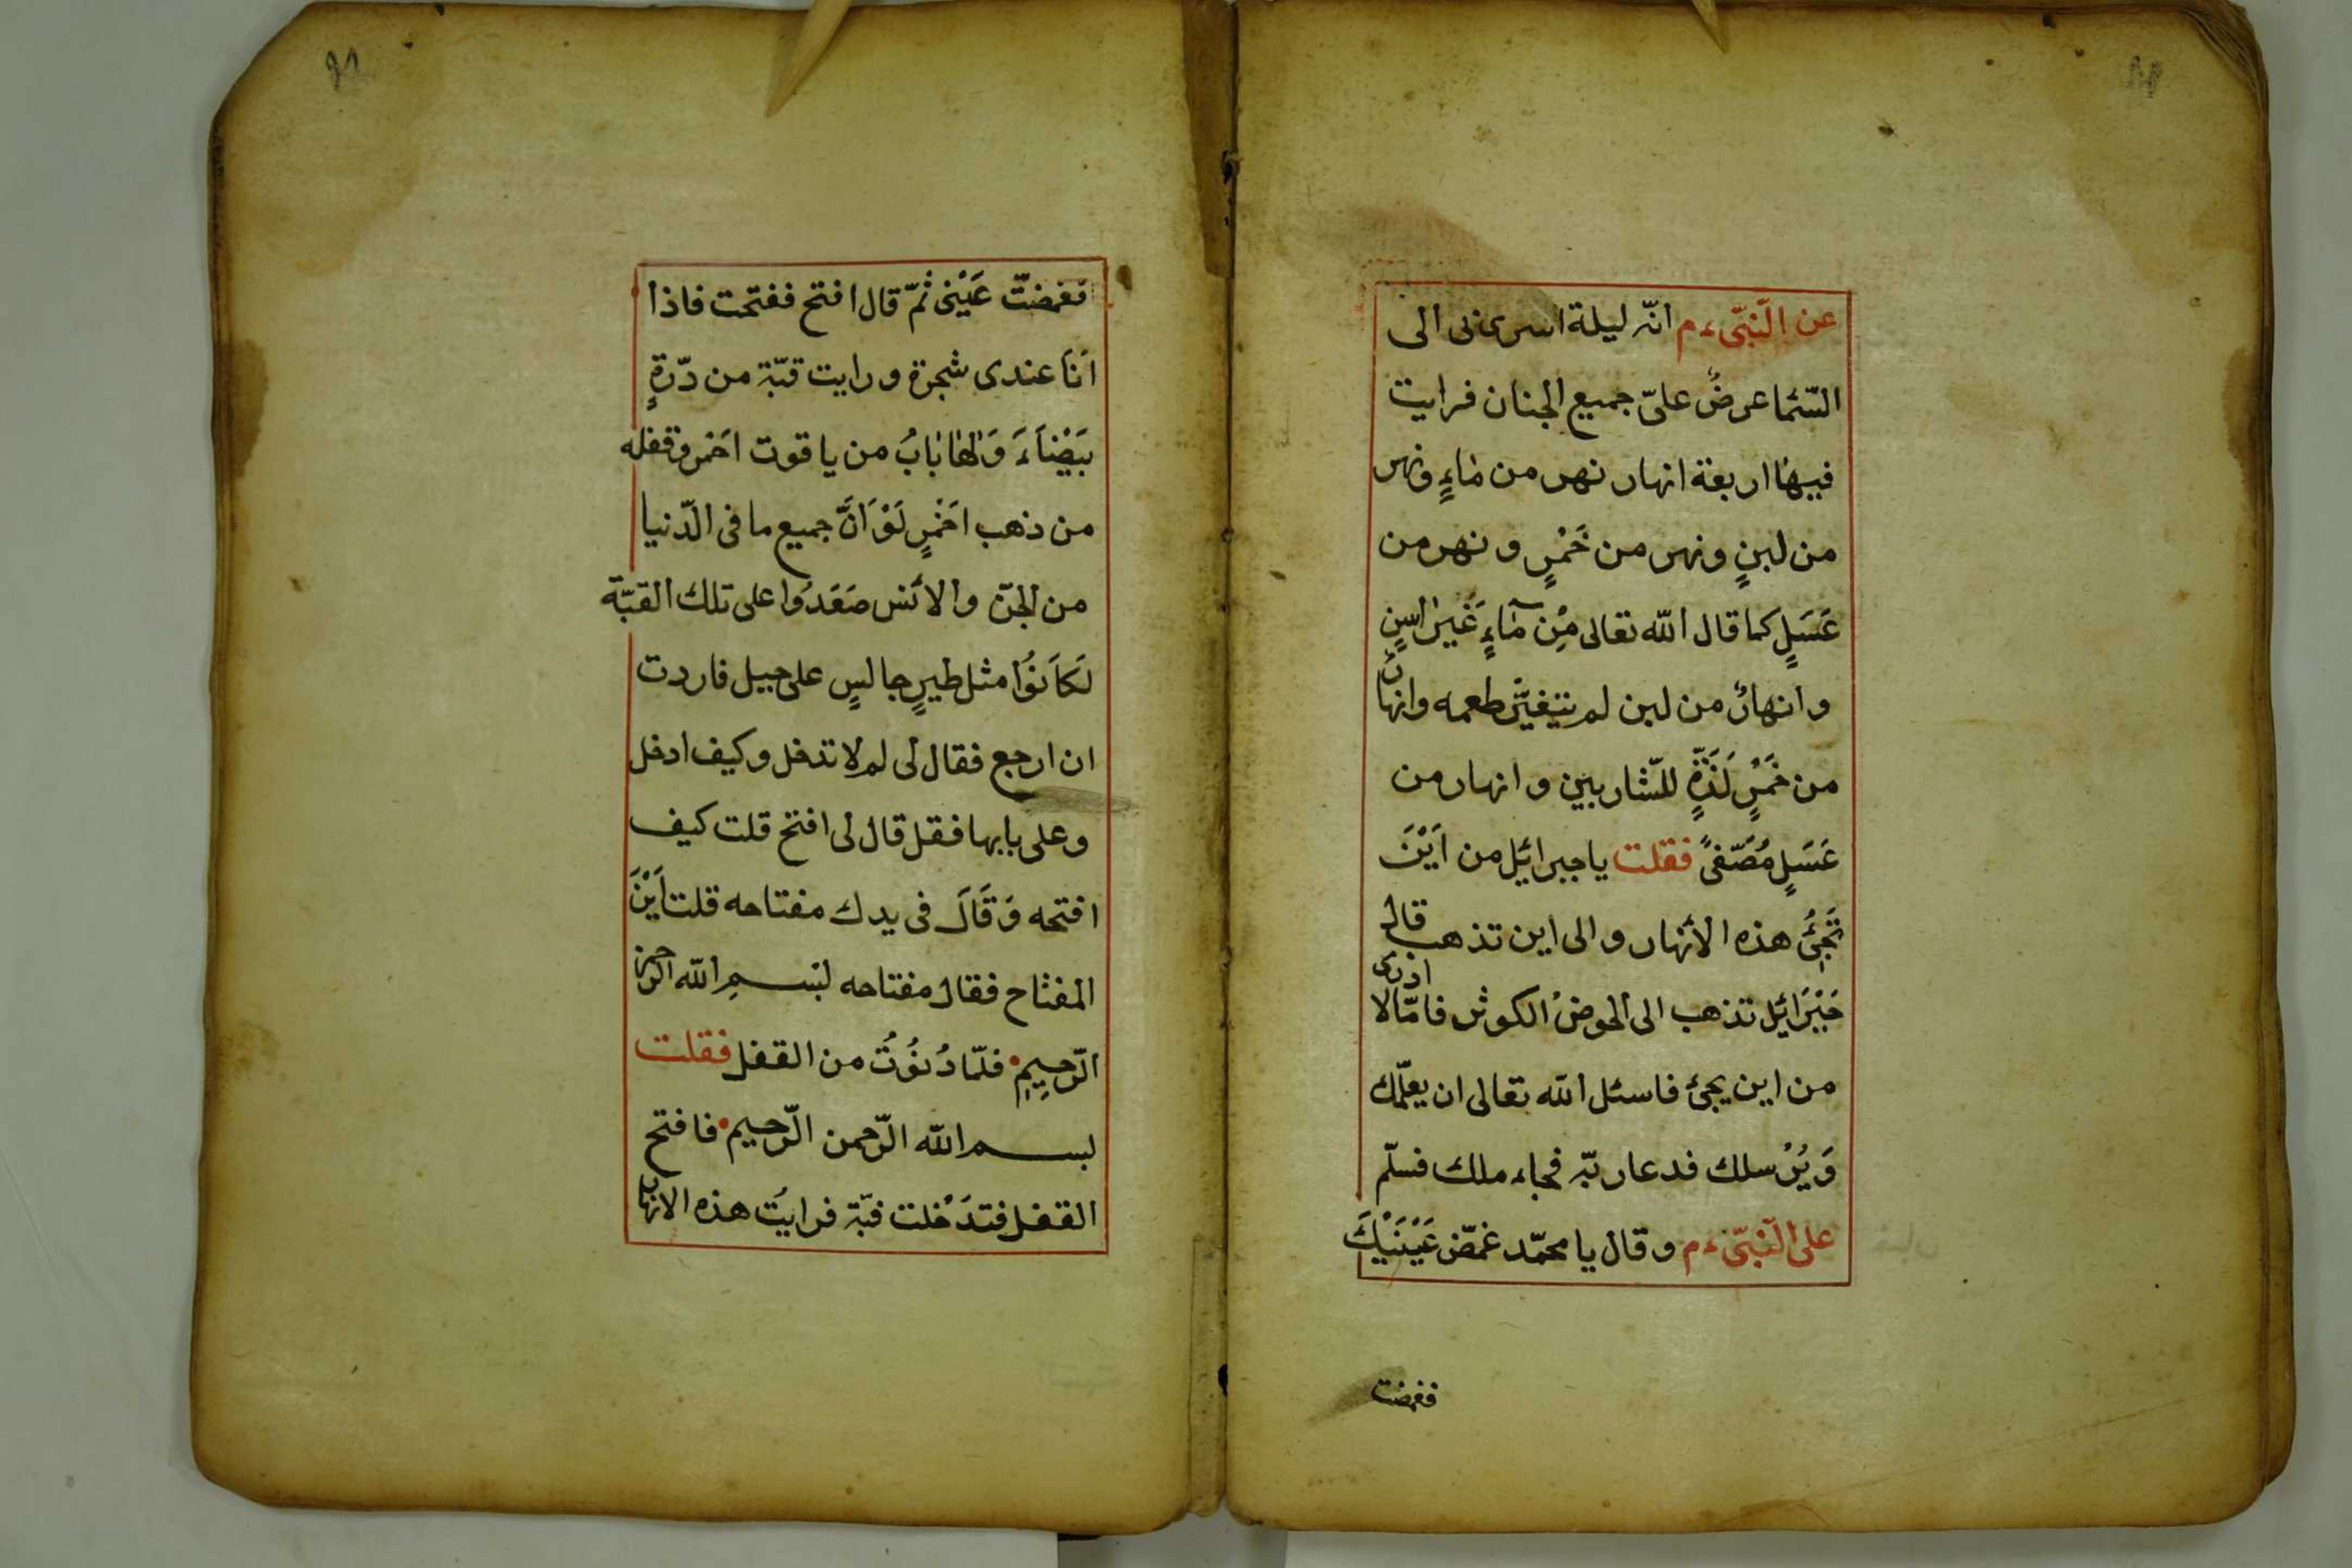 عن النّبیّ ءم انّه لیلة اسری بی الی
السّئما عرضٌ علیّ جمیع الجنان فرایت
فیهٰا اربعة انهار نهر من مٰاءٍ ونهر
من لبنٍ ونهر من خَمْرٍ و نهر من
عَسَلٍ کما قال اللّه تعالی مِنْ مٰآءٍ غَیر اٰسِنٍ
و انهارٌ من لبن لم یتغیّر طعمه وانهارٌ
من خَمْرٍ لَذَّةٍ للشّاربین و انهار من
عَسَلٍ مُصَفّیً فقلت یا جبرائیل من اَیْنَ
تَجِئُ هذه الأنهار و الی این تذهب قال
جَبْرَائیل تذهب الی الحوض الکوثر فامّا لا ادری
من این یجئ فاسئل اللّه تعالی ان یعلّمك
وَ یُرْسلك فدعا ربّه فجاء ملك فسلّم
علی النّبیّ ءم و قال یا محمّد غمّض عَیْنَیْكَ
فغمضت
فغمضتّ عَیْنی ثمّ قال افتح ففتحت فاذا
اَنَا عندی شجرة و رایت قبّة من دّرةٍ
بَیْضَاءَ وَلهٰا بٰابٌ من یاقوت اَحْمر وقفله
من ذهب اَحْمرٍ لَوْ اَنَّ جمیع ما فی الدّنیا
من الجنّ والأنس صَعَدُوا علی تلك القبّة
لَکَانُوا مثل طیرٍ جالسٍ علی جبیل فاردت
ان ارجع فقال لی لم لا تدخل و کیف ادخل
و علی بابها فقل قال لی افتح قلت کیف
افتحه وَ قَالَ فی یدك مفتاحه قلت اَیْنَ
المفتاح فقال مفتاحه لبسمِ اللّه الرّحمن
الرّحیمِ فلمّا دُنُوْتُ من القفل فقلت
بسم اللّه الرّحمن الرّحیم فافتح
القفل فتدَخْلت قبّة فرایتُ هذه الانهار